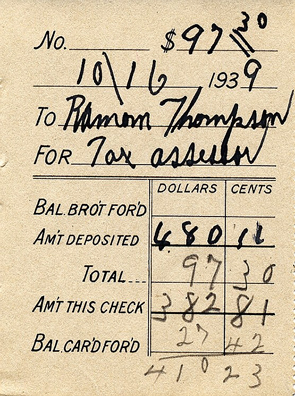 No. $97 30
10\16 1939
To Ramom Thompson
FOR Tax assessor
DOLLARS CENTS
BAL. BRO'T FOR'D
AM'T DEPOSITED 480 11
TOTAL 97 30
AM'T THIS CHECK 382 81
BAL. CAR'D FOR'D 27 42
410 23